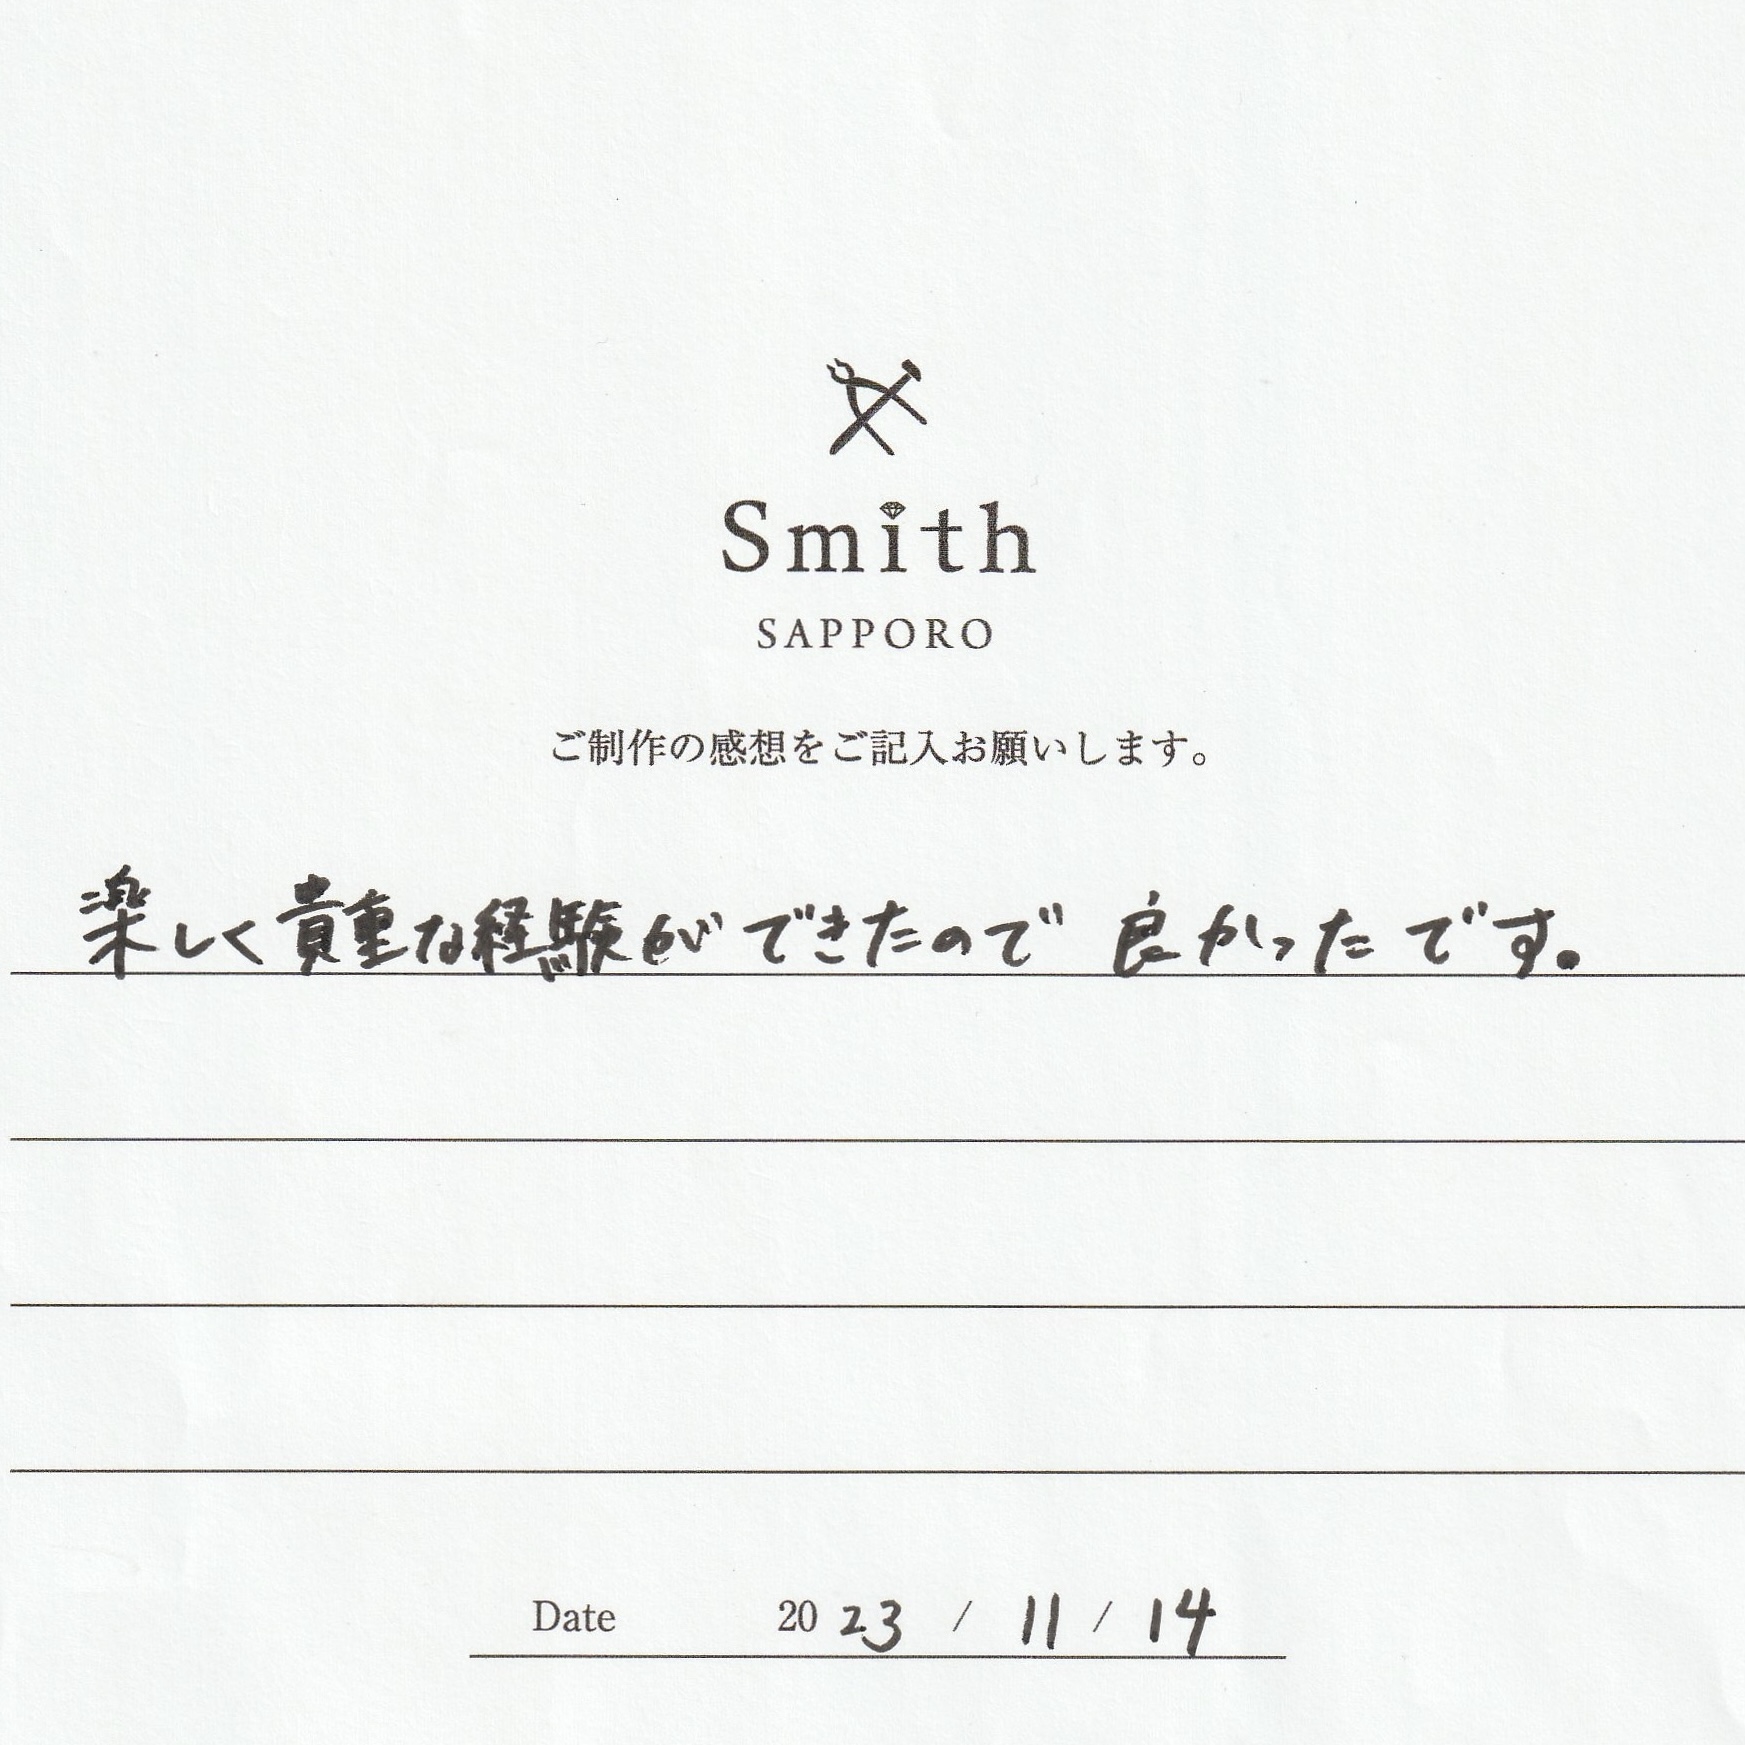 Smith
SAPPORO
ご制作の感想をご記入お願いします。
楽しく貴重な経験ができたので 良かったです。
Date 2023 / 11 / 14